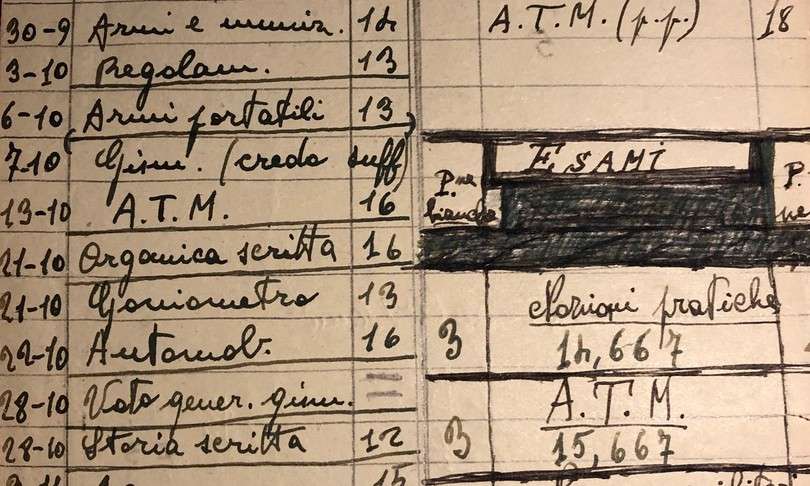 30-9 Armi e muniz. 14
3-10 Regolam. 13
6-10 Armi portatili 13
7-10 Ginn. (credo suff)
13-10 A.T.M. 16
21-10 Organica scritta 16
21-10 Goniometro 13
22-10 Automob. 16
28-10 Voto gener. ginn. =
28-10 Storia scritta 12
15
A.T.M. (p.p.) 18
ESAMI
P.ne bianche
P.
ne
Nozioni pratiche
3 14,667
A.T.M.
3 15,667